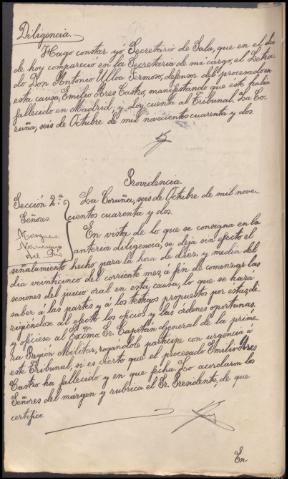 Diligencia.
Hago constar yo Secretario de Sala, que en el dia
de hoy compareció en la Secretaria de mi cargo, el Letra-
do Don Antonio Ulloa Fermoso, defensor del procesado en
esta causa, Emilio Ares Castro, manifestando que este había
fallecido en Madrid, y doy cuenta al Tribunal. La Co-
ruña, seis de Octubre de mil novecientos cuarenta y dos
Providencia.
Sección 2ª
Señores
del Rio
La Coruña, seis de Octubre de mil nove-
cientos cuarenta y dos.
En vista de lo que se consigna en la
anterior diligencia, se deja sin efecto el
señalamiento hecho para la hora de diez y media del
dia veinticinco del corriente mes a fin de comenzar las
sesiones del juicio oral en esta causa, lo que se hará
saber á las partes y á los testigos propuestos por estas di-
rigiéndose al efecto los oficios y las órdenes oportunas,
y oficiese al Excmo. Sr. Capitan General de la prime-
ra Region Militar, rogándole participe con urgencia á
este Tribunal, si es cierto que el procesado Emilio Ares
Castro ha fallecido y en que fecha. Lo acordaron los
Señores del márgen y rubrica el Sr. Presidente, de que
certifico.
En